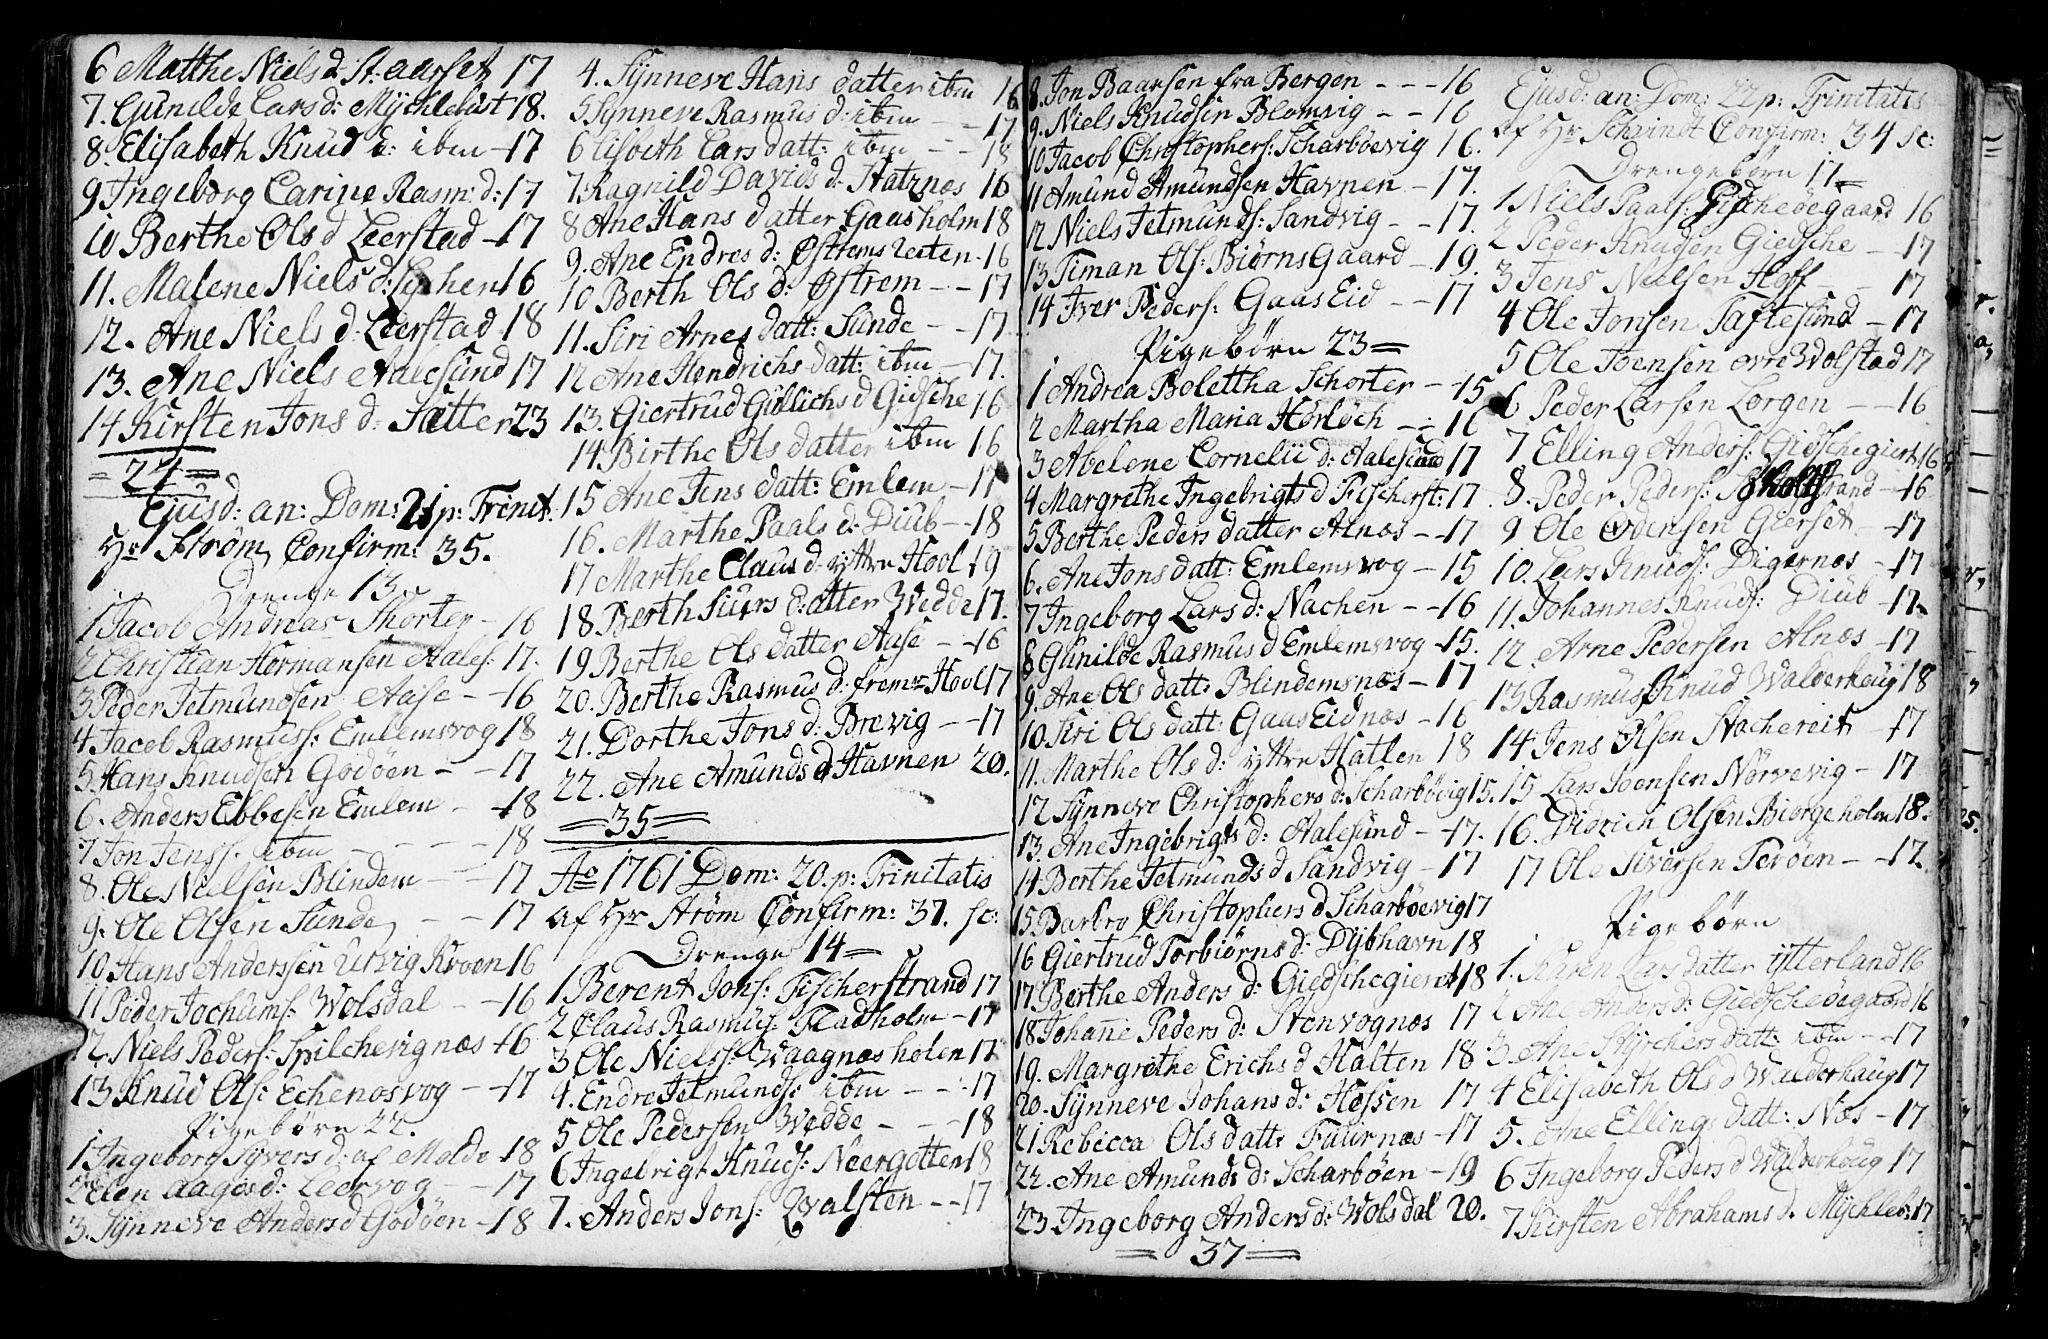 6 Matthe Niels d. St. aarset 17
7. Gunilde Lars d: Mychlebust 18.
8. Elisabeth Knud d: ibm - 17
9 Ingeborg Carine Rasm: d: 17
10 Berthe Ols d Leerstad - 17
11. Malene Niels d: 16
12. Ane Niels d. Leerstad 18
13. Ane Niels Aalesund 17
14 Kirsten Jons d: Sætter 23
= 24 =
Ejusd: an: Dom: 21 p: Trinit:
Hr Strøm Confirm: 35.
Drenge 13
1 Jacob Andreas Skorter - 16
2 Christian Hermansen Aales: 17.
3 Peder Jetmundsen Aase - - 16
4 Jacob Rasmuss: Emlemsvog 18
5. Hans Knudsen Godøen - - 17
6. Anders Ebbesen Emlem - - 18
7 Jon Jenss: ibm - - - - 18
8. Ole Nielsen Blindem - - 17
9. Ole Olsen Sunde - - 17
10 Hans Anderssen Utvig Kroen 16
11 Peder Jochums: Wolsdal - - 16
12. Niels Peders: Spilchevignæs - 16
13 Knud Ols: Echenosvog - - 17
Pigebørn 22.
1 Ingeborg Syvers d: af Molde - 18
2 Elen Aages d: Leervog - - 17
3. Synneve Anders d Godøen - 18
4. Synneve Hans datter ibm 16
5 Synneve Rasmus d: ibm - - 17
6 Lisbeth Lars datt: ibm - - 18
7. Ragnild Davids d: Statznæs 16
8 Ane Hans datter Gaasholm 18
9. Ane Endres d: Østremsletten - 16
10 Berth Ols d: Østrem - - 17
11. Siri Arnes datt: Sunde - - 17
12 Ane Hendrichs datt: ibm - - 17.
13. Giertrud Gullichs d Gidsche 16
14 Birthe Ols datter ibm 16
15 Ane Jens datt: Emlem - 17
16. Marthe Paals d: Diub - - 18
17 Marthe Claus d. yttre Hool 19
18 Berth Siurs datter Wedde 17.
19 Berthe Ols datter Aase - - 16
20. Berthe Rasmus d: fremr Hool 17
21. Dorthe Jons d: Brevig - - 17
22. Ane Amunds d Havnen 20.
= 35 =
Ao 1761 Dom: 20. p: Trinitatis
af Hr Strøm Confirm: 37. sc:
Drenge 14 =
1 Berent Jons: Fischerstrand 17
2 Claus Rasmus: Fladholm - 17
3 Ole Nielss: Waagnæs holen 17
4. Endre Jetmunds: ibm - - 17
5 Ole Pedersen Wedde - - - 18
6 Ingebrigt Knuds: Nøergotten 18
7. Anders Jons: Qvalsten - - 17
8. Jon Baarsen fra Bergen - - - 16
9. Niels Knudsen Blomvig - - 16
10 Jacob Christophers: Scharbøevig 16.
11 Amund Amundsen Havnen - 17.
12 Niels Jetmunds: Sandvig - - 17.
13 Timan Ols: Biørns Gaard - 19.
14 Iver Peders: Gaas Eid - - 17
Pigebørn 23 =
1 Andrea Bolettha Schorter - 15
2 Martha Maria Hørløch - - 16
3 Abelone Cornelii d: Aalesund 17
4 Margrethe Ingebrigts d Fischerst: 17
5 Berthe Peders datter Alnæs - 17
6. Ane Jons datt: Emlemsvog - 15
7 Ingeborg Lars d: Nachen - - 16
8 Gunilde Rasmus d Emlemsvog - 15.
9. Ane Ols datt: Blindemsnæs - 17
10. Siri Ols datt: Gaas Eidnæs - 16
11. Marthe Ols d: yttre Hatlen 18
12 Synneve Christophers d: Scharbøvig 15.
13. Ane Ingebrigts d: Aalesund - 17.
14 Berthe Jetmunds d Sandvig - 17
15. Barbro Christophers d Scharbøevig 17
16 Giertrud Torbiørns d: Dybhavn 18
17. Berthe Anders d: Giedschegieret 18
18 Johane Peders d: Stenvognæs 17
19. Margrethe Erichs d Halten 18
20. Synneve Johans d: Hessen 17
21 Rebicca Ols datt: Fuurnæs - 17
22. Ane Amunds d: Scharbøen - 19
23 Ingeborg Anders d: Wolsdal 20.
= 37 =
Ejusd: an: Dom: 22 p: Trinitatis
af Hr Schmidt Confirm: 34 sc:
Drengebørn 17 =
1 Niels Paals: Gischeøegaard 16
2 Peder Knudsen Giedsche - 17
3 Jens Nielsen Hoff - - 17
4 Ole Jonsen Taftesund - 17
5 Ole Joensen øvre Wolstad 17
6 Peder Larsen Lorgen - - 16
7 Elling Anders: Gidschegieret 16
8. Peder Peders: strand - 16
9 Ole Odensen Gierset - 17
10. Lars Knuds: Digernæs - 17
11. Johannes Knuds: Diub - 17
12. Arne Pedersen Alnæs - 17
13 Rasmus Knud Walderhoug 18
14 Jens Olsen Stachereit - 17
15 Lars Joensen Nørvevig - 17
16. Didrich Olsen Biørgeholm 18.
17 Ole Siversen Terøen - - 17.
Pigebørn
1. Karen Lars datter ytterland 16
2 Ane Anders d: Giedscheøegaard 16
3 Ane Styrchers datt: ibm - - 17
4 Elisabeth Ols d Walderhaug 17
5. Ane Ellings datt: Næs - 17
6 Ingeborg Peders d Walderhoug 17
7 Kirsten Abrahams d. Mychleb: 17